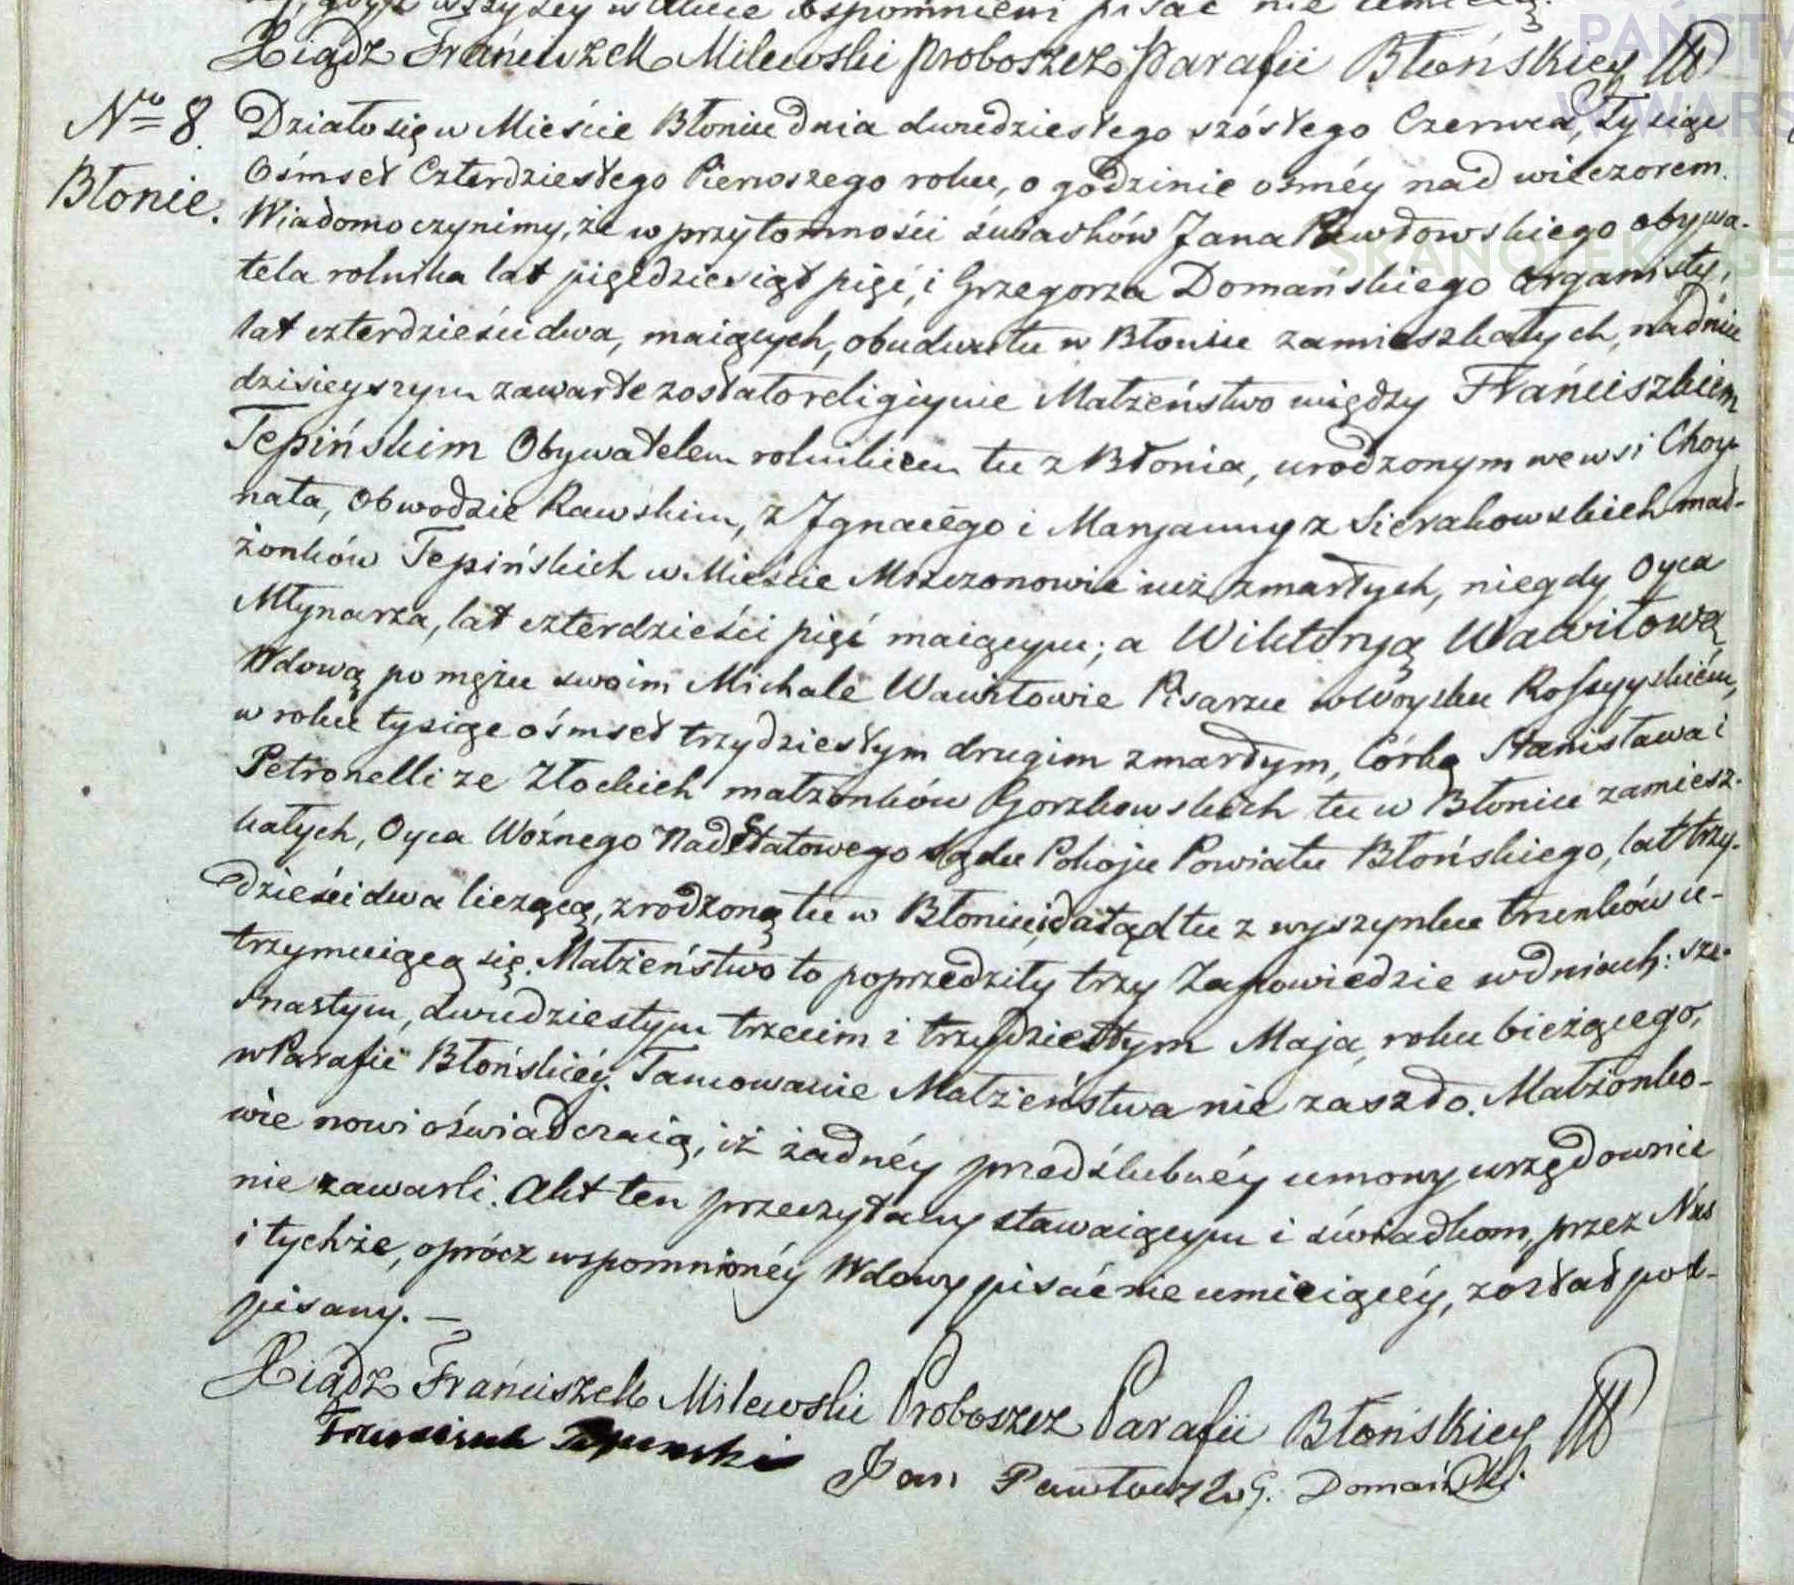 wszyscy w Akcie wspomnieni pisać nie umieją.
Xiądz Franciszek Milewski Proboszcz Parafii Błońskiey
PAŃSTW
W WARS
SKANOTEKA GE
Nro 8.
Błonie.
Działo się w Mieście Błoniu dnia dwudziestego szóstego Czerwca, tysiąc
Ośmset Czterdziestego Pierwszego roku, o godzinie ósméy nad wieczorem.
Wiadomo czynimy, że w przytomności świadków Jana Pawłowskiego obywa-
tela rolnika lat pięćdziesiąt pięć, i Grzegorza Domańskiego Organisty,
lat czterdzieści dwa, maiących, obudwu tu w Błoniu zamieszkałych, na dniu
dzisieyszym zawarte zostało religiyne Małżeństwo między Franciszkiem
Tepińskim Obywatelem rolnikiem tu z Błonia, urodzonym we wsi Choy-
nata, Obwodzie Rawskim, z Jgnacégo i Maryanny z Sierakowskich mał-
żonków Tepińskich w Mieście Mszczonowie iuż zmarłych, niegdy Oyca
Młynarza, lat czterdzieści pięć maiącym; a Wiktoryą Wawiłową
Wdową po mężu swoim Michale Wawiłowie Pisarzu w Woysku Rossyyskiém,
w roku tysiąc ośmset trzydziestym drugim zmarłym, Córką Stanisława i
Petronelli ze Złockich małżonków Gorzkowskich tu w Błoniu zamiesz-
kałych, Oyca Woźnego Nadetatowego Sądu Pokoju Powiatu Błońskiego, lat trzy-
dzieści dwa liczącą, zrodzoną tu w Błoniu i dotąd tu z wyszynku trunków u-
trzymuiącą się. Małżeństwo to poprzedziły trzy Zapowiedzie w dniach: sze-
snastym, dwudziestym trzecim i trzydziestym Maja, roku bieżącego,
w Parafii Błońskiéy. Tamowanie Małżeństwa nie zaszło. Małżonko-
wie nowi oświadczaią, iż żadnéy przedślubnéy umowy urzędownie
nie zawarli. Akt ten przeczytany stawaiącym i świadkom, przez Nas
i tychże, oprócz wspomnionéy Wdowy pisać nie umieiącéy, został pod-
pisany. —
Xiądz Franciszek Milewski Proboszcz Parafii Błońskiey
Franciszek Tepinski
Jan Pawłowski G. Domański.